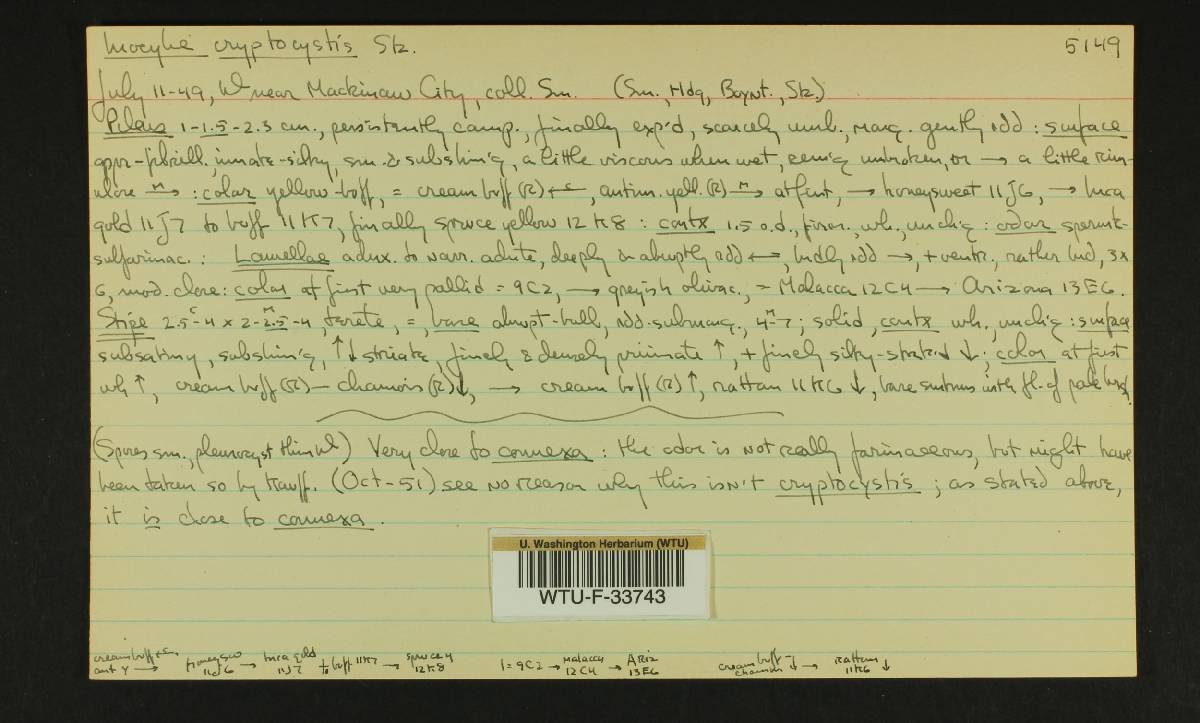 Inocybe cryptocystis Stz. 5149
July 11-49, W near Mackinaw City, coll. Sm. (Sm., Hdq, Boynt., Stz.)
Pileus 1-1.5-2.3 cm., persistently camp., finally exp'd, scarcely umb., marg. gently rdd : surface
appr-fibrill., innate-silky, sm. & subshin'g, a little viscous when wet, rem'g unbroken, or → a little rim-
ulose → : color yellow-buff, = cream buff (R) ←, antim. yell. (R) → at first, → honeysweet 11J6, → Inca
gold 11J7 to buff 11K7, finally spruce yellow 12K8 : contx 1.5 o.d., firm, wh., unch'g : odor spermt-
subfarinac. : Lamellae adnx. to narr. adnate, deeply & abruptly rdd ←→, bndly rdd →, + ventr., rather brd, 3x
6, mod. close : color at first very pallid = 9C2, → greyish olivac., = Malacca 12C4 → Arizona 13E6.
Stipe 2.5-4 x 2-2.5-4, terete, =, base abrupt-bulb, rdd-submarg., 4-7 ; solid, contx wh., unch'g : surface
subsatiny, subshin'g, ↑↓ striate, finely & densely pruinate ↑, + finely silky-striate ↓ ; color at first
wh ↑, cream buff (R) – chamois (R) ↓, → cream buff (R) ↑, rattan 11K6 ↓, base
(Spores sm., pleurocyst thin W) Very close to connexa : the odor is not really farinaceous, but might have
been taken so by Kauff. (Oct-51) see no reason why this isn't cryptocystis ; as stated above,
it is close to connexa.
U. Washington Herbarium (WTU)
WTU-F-33743
cream buff + c. honeysw → Inca gold to buff 11K7 → spruce y 1 = 9C2 → Malacca → Ariz cream buff ↓ → Rattan
ant Y → 11J6 11J7 12K8 12C4 13E6 chamois 11K6 ↓